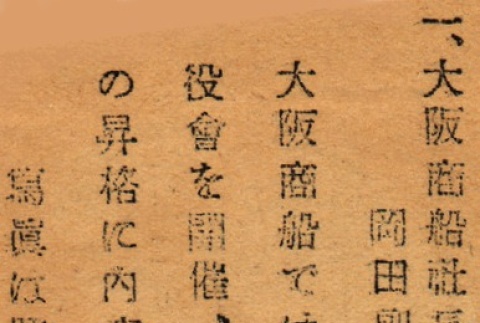 一、大阪商船社長
岡田副
大阪商船では
役會を開催、
の昇格に内
寫眞は